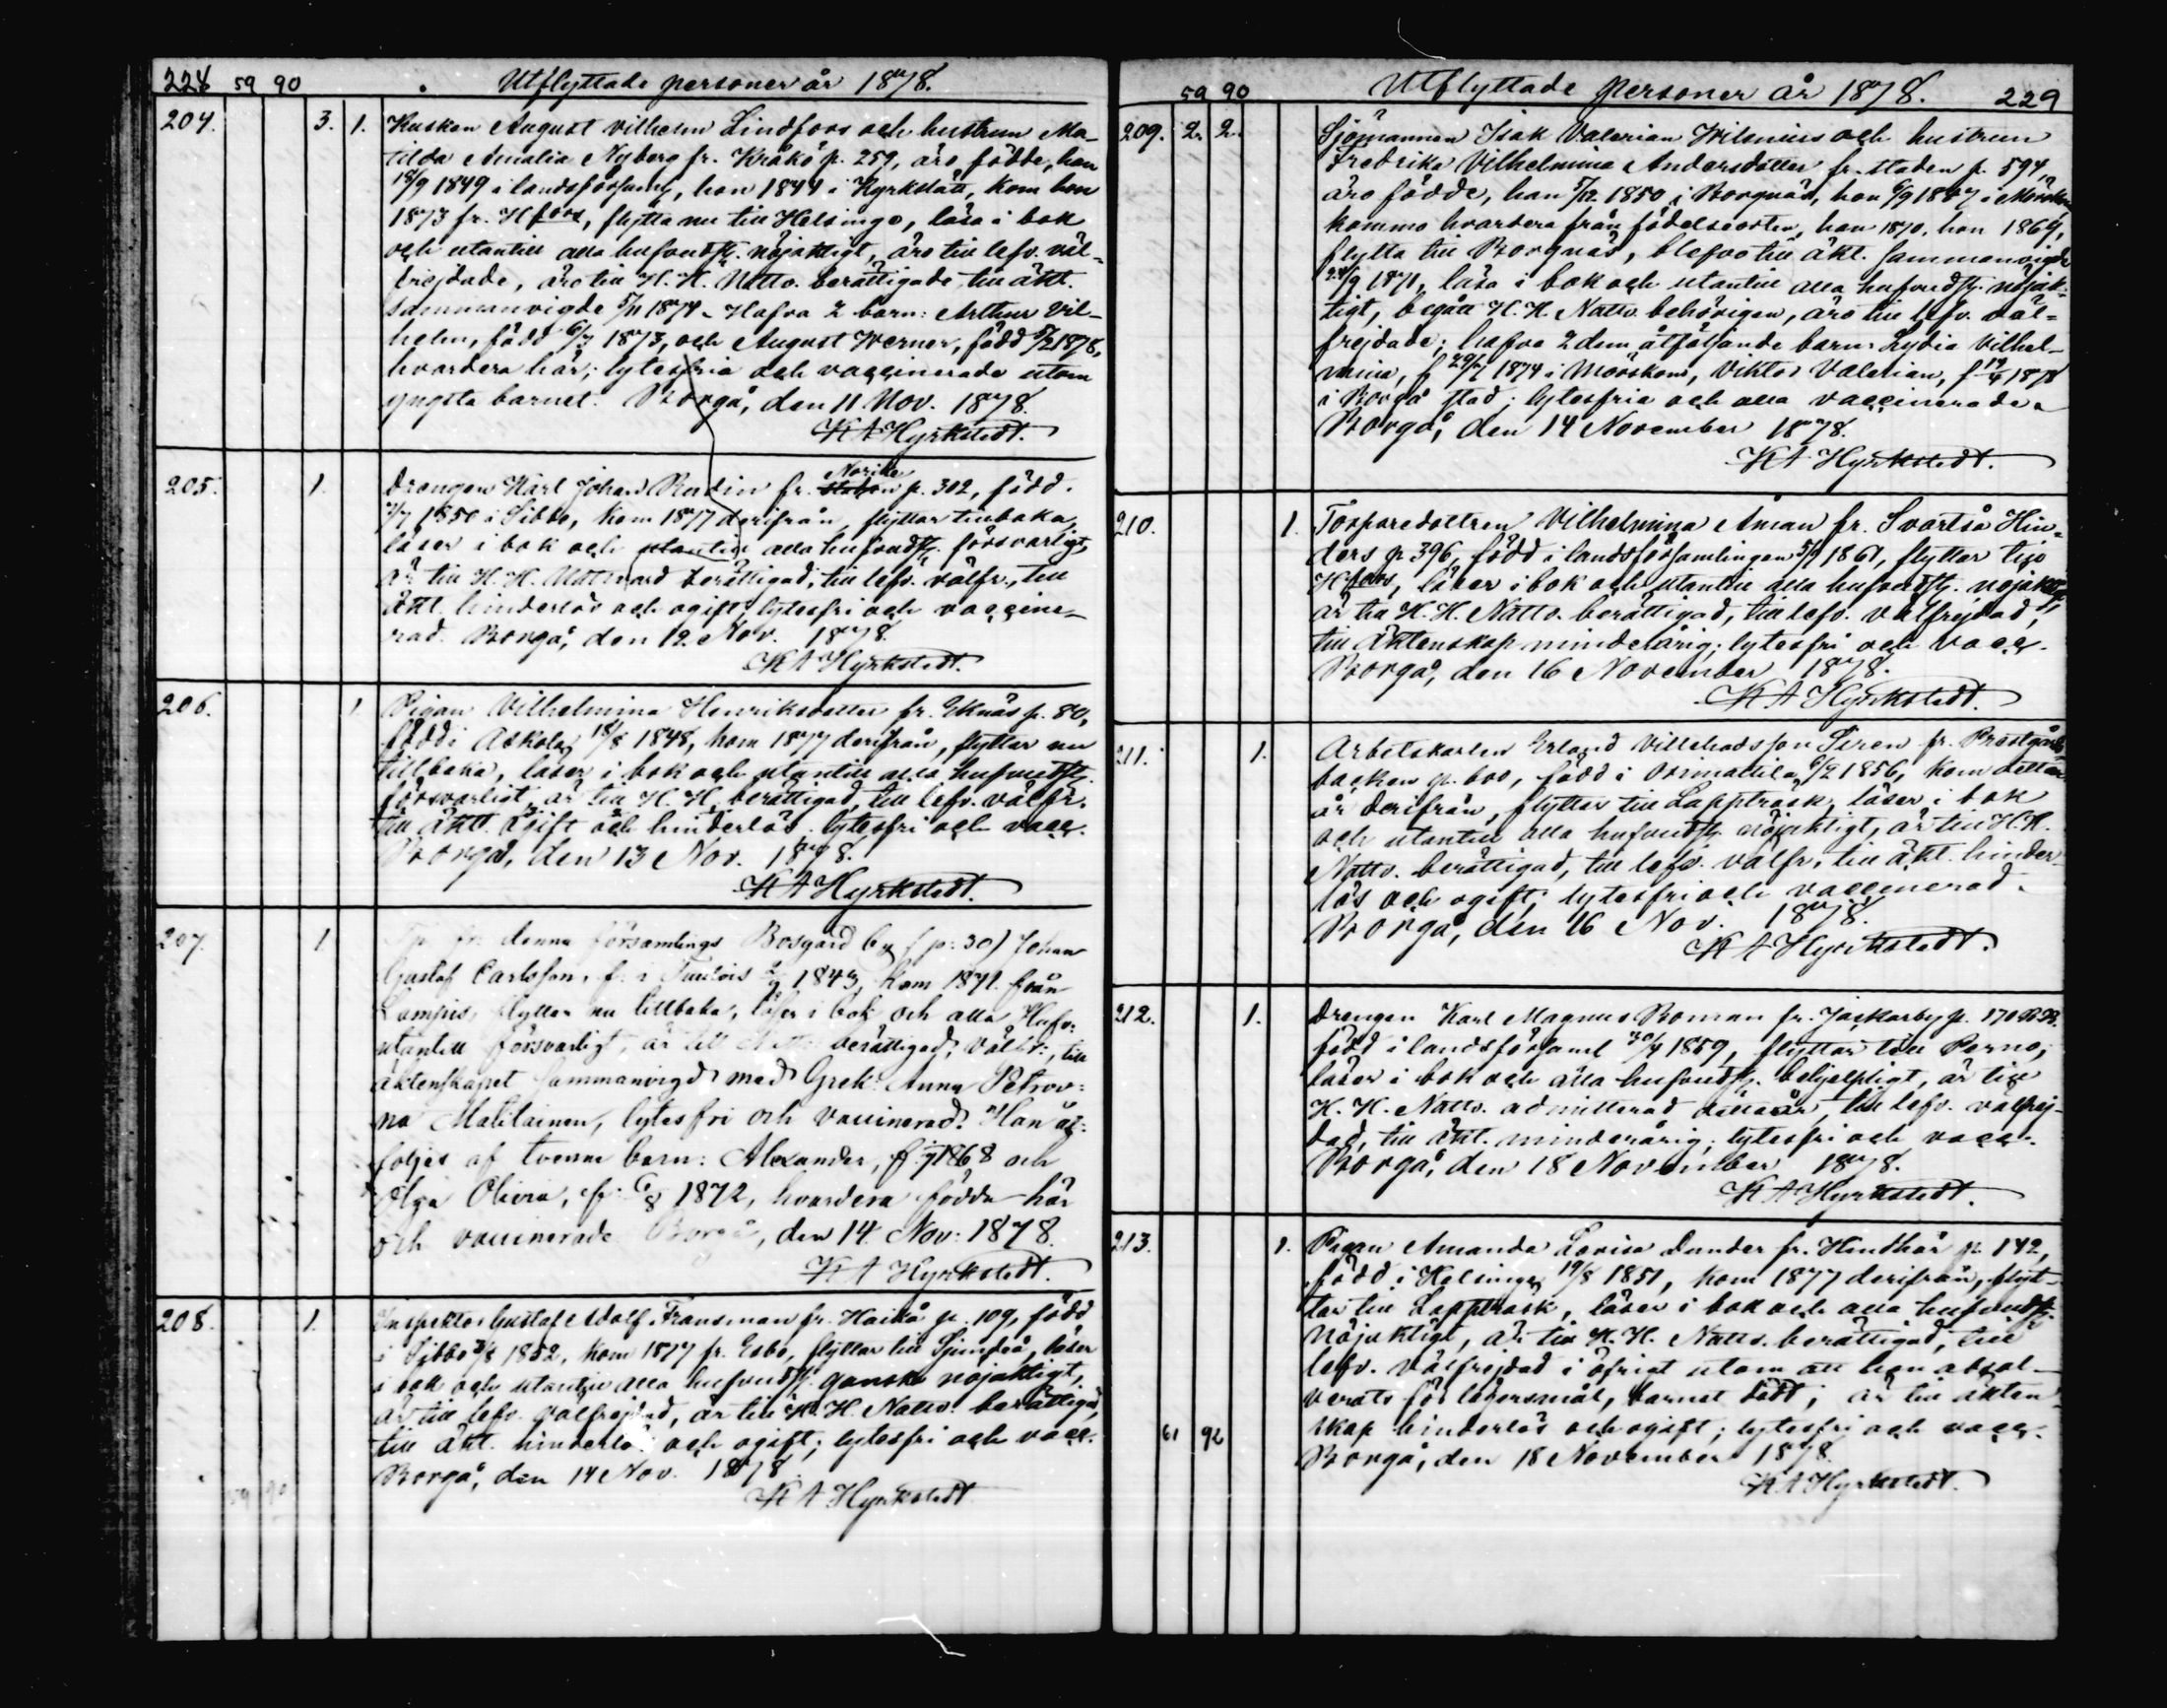 228 59 90 Utflyttade personer år 1878.
204. 3. 1. Kusken August Vilhelm Lindfors och hustrun Ma-
tilda Amalia Nyberg fr. Kråkö p. 259, äro födde, han
18/9 1849 i landsförsaml, hon 1844 i Kyrkslätt, kom hon
1873 fr. Hfors, flytta nu till Helsinge, läsa i bok
och utantill alla hufvudst. nöjaktigt, äro till lefv. väl-
frejdade, äro till H. H. Nattv. berättigade till äkt.
sammanvigde 5/11 1874. Hafva 2 barn: Arthur Vil-
helm, född 6/3 1875, och August Werner, född 5/2 1878,
hvardera här; lytesfria och vaccinerade utom
yngsta barnet. Borgå, den 11 Nov. 1878.
K A Hyrkstedt.
205. 1. Drengen Karl Johan Rudin fr. Norike p. 302, född
1850 i Sibbo, kom 1877 derifrån, flyttar tillbaka,
läser i bok och utantill alla hufvudst. försvarligt,
är till H. H. Nattvard berättigad, till lefv. välfr., till
äkt. hinderlös och ogift; lytesfri och vaccine-
rad. Borgå, den 12 Nov. 1878.
K A Hyrkstedt.
206. 1. Pigan Vilhelmina Henriksdotter fr. Eknäs p. 80,
född i Askola 18/8 1848, kom 1877 derifrån, flyttar nu
tillbaka, läser i bok och utantill alla hufvudst.
försvarligt, är till H. H. berättigad, till lefv. välfr.
till äkt. ogift och hinderlös. lytesfri och vacc.
Borgå, den 13 Nov. 1878.
K A Hyrkstedt.
207. 1 fr. denna församlings Bosgård by (p: 30) Johan
Gustaf Carlsson, f. i Tuulois 1843, kom 1871 från
Lampis, flyttar nu tillbaka, läser i bok och alla Hufv:
utantill försvarligt, är till Nattv berättigad, välfr:, till
äktenskapet sammanvigd med Grek: Anna Petrov:
na Matilainen, lytesfri och vaccinerad. Han åt:
följes af tvenne barn: Alexander, f. 1868 och
Olga Olivia, f. 6/8 1872, hvardera födda här
och vaccinerade Borgå, den 14 Nov: 1878.
K A Hyrkstedt.
208. 1. Inspektor Gustaf Adolf Fransman fr. Haikå p. 109, född
i Sibbo 1852, kom 1877 fr. Esbo, flyttar till Sjundeå, läser
i bok och utantill alla hufvudst. ganska nöjaktigt,
är till lefv. välfrejdad, är till H. H. Nattv. berättigad,
till äkt. hinderlös och ogift; lytesfri och vacc.
Borgå, den 14 Nov. 1878.
K A Hyrkstedt
59 90
59 90 Utflyttade personer år 1878. 229
209. 2. 2. Sjömannen Isak Valerian Wilenius och hustrun
Fredrika Vilhelmina Andersdotter fr. staden p. 594,
äro födde, han 5/12 1850 i Borgnäs, hon 6/9 1847 i Mörskom
kommo hvardera från födelseorten, han 1870, hon 1869,
flytta till Borgnäs, blefvo till äkt. sammanvigde
24/9 1871, läsa i bok och utantill alla hufvudst. nöjak-
tigt, begått H. H. Nattv. behörigen, äro till lefv. väl-
frejdade; hafva 2 dem åtföljande barn: Lydia Vilhel-
mina, f 1874 i Mörskom, Viktor Valerian, f 1878
i Borgå stad; lytesfria och alla vaccinerade.
Borgå, den 14 November 1878.
K A Hyrkstedt.
210. 1. Torparedottren Vilhelmina Åman fr. Svartså Hin-
ders p 396, född i landsförsamlingen 5/9 1861, flyttar till
Hfors, läser i bok och utantill alla hufvudst. nöjaktigt,
är till H. H. Nattv. berättigad, till lefv. välfrejdad,
till äktenskap minderårig; lytesfri och vacc.
Borgå, den 16 November 1878.
K A Hyrkstedt.
211. 1. Arbetskarlen Erland Villehadsson Siren fr. Prostgårds
backen p. 600, född i Orimattila 6/2 1856, kom detta
år derifrån, flyttar till Lappträsk, läser i bok
och utantill alla hufvudst. nöjaktigt, är till H. H.
Nattv. berättigad, till lefv. välfr., till äkt. hinder
lös och ogift; lytesfri och vaccinerad.
Borgå, den 16 Nov. 1878.
K A Hyrkstedt.
212. 1. Drengen Karl Magnus Boman fr. Jackarby p. 170
född i landsförsaml 30/4 1859, flyttar till Perno,
läser i bok och alla hufvudst. behjelpligt, är till
H. H. Nattv. admitterad detta år, till lefv. välfrej-
dad, till äkt. minderårig; lytesfri och vacc.
Borgå, den 18 November 1878.
K A Hyrkstedt.
213. 1. Pigan Amanda Lovisa Dunder fr. Hindhår p. 142,
född i Helsinge 19/8 1851, kom 1877 derifrån, flyt-
tar till Lappträsk, läser i bok och alla hufvudst.
nöjaktigt, är till H. H. Nattv. berättigad, till
lefv. välfrejdad i öfrigt utom att hon absol-
verats för lägersmål, barnet dödt; är till äkten
skap hinderlös och ogift; lytesfri och vacc.
61 92 Borgå, den 18 November 1878.
K A Hyrkstedt.